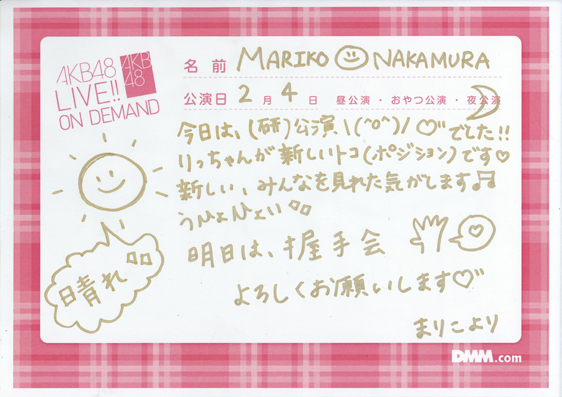 AKB48
LIVE!!
ON DEMAND
AKB
48
名前 MARIKO NAKAMURA
公演日 2月4日 昼公演・おやつ公演・夜公演
今日は、(研)公演\(^o^)/♡でした!!
りっちゃんが新しいトコ(ポジション)です♡
新しい、みんなを見れた気がします♫
うひょひょい
晴れ
明日は、握手会
よろしくお願いします♡
まりこより
DMM.com